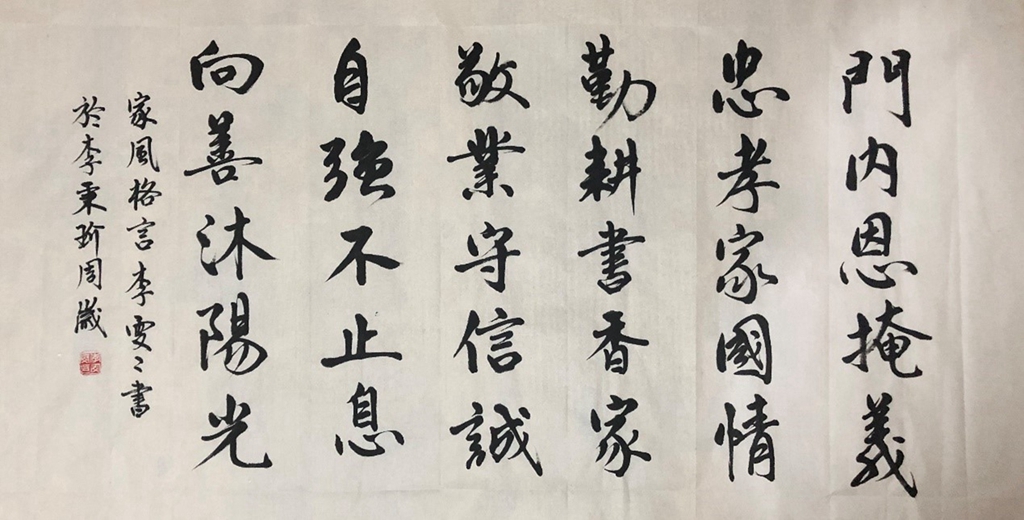 門内恩掩義
忠孝家國情
勤耕書香家
敬業守信誠
自強不止息
向善沐陽光
家風格言李雯〻書
於李秉玠周歲